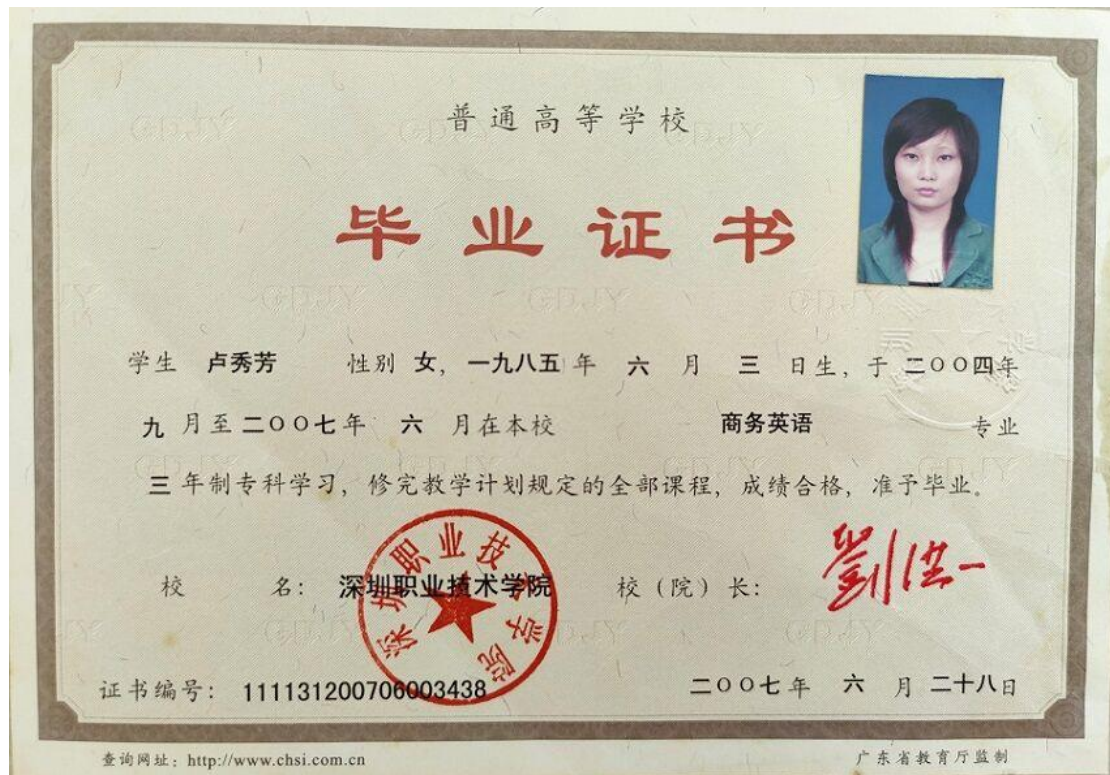 普通高等学校
毕业证书
学生 卢秀芳 性别 女，一九八五年 六 月 三 日生，于 二〇〇四年
九 月至 二〇〇七年 六 月在本校 商务英语 专业
三 年制专科学习，修完教学计划规定的全部课程，成绩合格，准予毕业。
校 名：深圳职业技术学院 校（院）长：劉洪一
深圳职业技术学院
证书编号：111131200706003438 二〇〇七年 六 月 二十八日
查询网址：http://www.chsi.com.cn 广东省教育厅监制